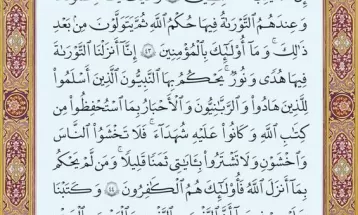 وَعِندَهُمُ ٱلتَّوْرَىٰةُ فِيهَا حُكْمُ ٱللَّهِ ثُمَّ يَتَوَلَّوْنَ مِنۢ بَعْدِ
ذَٰلِكَ ۚ وَمَآ أُو۟لَـٰٓئِكَ بِٱلْمُؤْمِنِينَ ٤٣ إِنَّآ أَنزَلْنَا ٱلتَّوْرَىٰةَ
فِيهَا هُدًى وَنُورٌ ۚ يَحْكُمُ بِهَا ٱلنَّبِيُّونَ ٱلَّذِينَ أَسْلَمُوا۟
لِلَّذِينَ هَادُوا۟ وَٱلرَّبَّـٰنِيُّونَ وَٱلْأَحْبَارُ بِمَا ٱسْتُحْفِظُوا۟ مِن
كِتَـٰبِ ٱللَّهِ وَكَانُوا۟ عَلَيْهِ شُهَدَآءَ ۚ فَلَا تَخْشَوُا۟ ٱلنَّاسَ
وَٱخْشَوْنِ وَلَا تَشْتَرُوا۟ بِـَٔايَـٰتِى ثَمَنًا قَلِيلًا ۚ وَمَن لَّمْ يَحْكُم
بِمَآ أَنزَلَ ٱللَّهُ فَأُو۟لَـٰٓئِكَ هُمُ ٱلْكَـٰفِرُونَ ٤٤ وَكَتَبْنَا